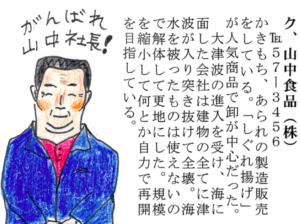 がんばれ
山中社長!
ク、山中食品(株)
℡57―3456
かきもち、あられの製造販売
をしている。「しぐれ揚げ」
が人気商品で卸が中心だった。
大津波の進入を受け、海に
面した会社は建物の全てに津
波が入り突き抜けて全壊。海
水を被ったものは使えないの
で解体して更地にした。規模
を縮小して何とか自力で再開
を目指している。